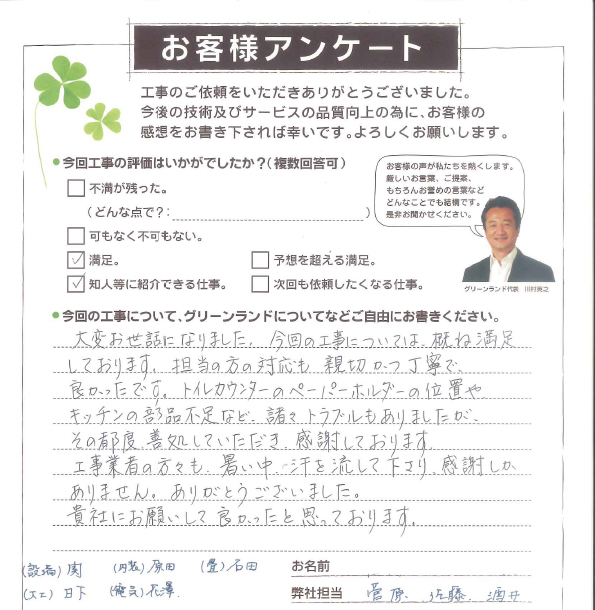 お客様アンケート
工事のご依頼をいただきありがとうございました。
今後の技術及びサービスの品質向上の為に、お客様の
感想をお書き下されば幸いです。よろしくお願いします。
●今回工事の評価はいかがでしたか?(複数回答可)
不満が残った。
(どんな点で?: )
可もなく不可もない。
満足。
予想を超える満足。
知人等に紹介できる仕事。
次回も依頼したくなる仕事。
お客様の声が私たちを熱くします。
厳しいお言葉、ご提案、
もちろんお誉めの言葉など
どんなことでも結構です。
是非お聞かせください。
グリーンランド代表 川村寛之
●今回の工事について、グリーンランドについてなどご自由にお書きください。
大変お世話になりました。今回の工事については、概ね満足
しております。担当の方の対応も親切かつ丁寧で、
良かったです。トイレカウンターのペーパーホルダーの位置や
キッチンの部品不足など、諸々トラブルもありましたが、
その都度、善処していただき、感謝しております。
工事業者の方々も、暑い中、汗を流して下さり、感謝しか
ありません。ありがとうございました。
貴社にお願いして良かったと思っております。
(設備)関 (内装)原田 (畳)石田
(大工)日下 (電気)花澤
お名前
弊社担当 菅原、佐藤、酒井